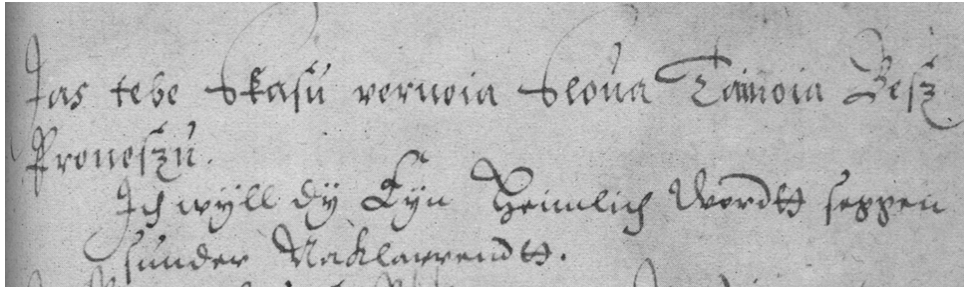 Jas tebe Skasu vernoia Sloua Tainoia Besz
Proneszu.
Ich wÿll dÿ Eyn Heimlich Wordtt seggen
sunder Naklarrendtt.